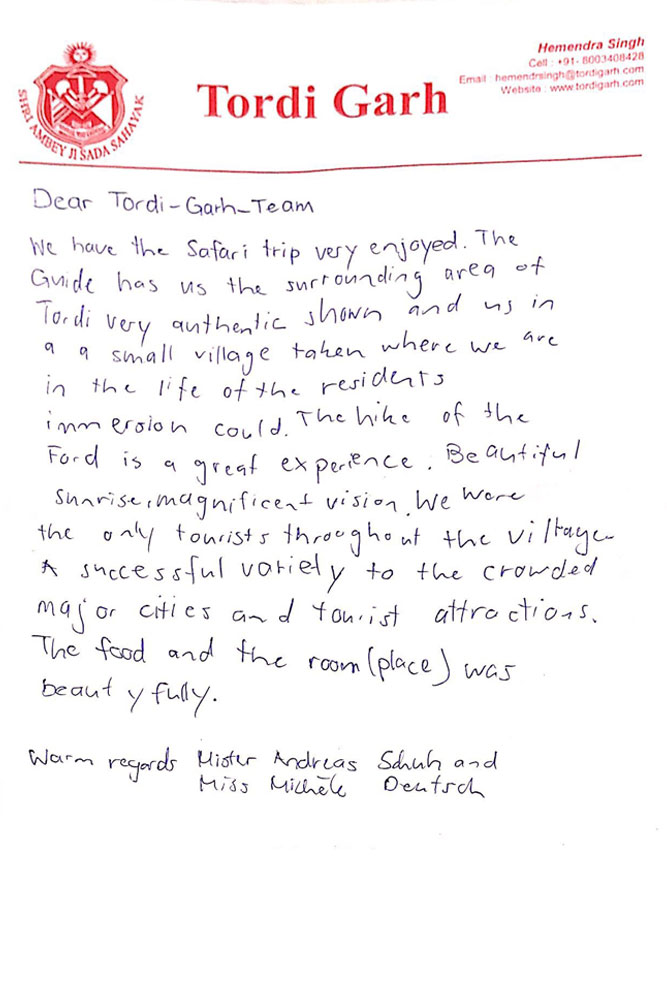 Hemendra Singh
Cell : +91- 8003408428
Email : hemendrsingh@tordigarh.com
Website : www.tordigarh.com
Tordi Garh
SHRI AMBEY JI SADA SAHAYAK
Dear Tordi-Garh-Team
We have the Safari trip very enjoyed. The
Guide has us the surrounding area of
Tordi very authentic shown and us in
a a small village taken where we are
in the life of the residents
immersion could. The hike of the
Ford is a great experience. Beautiful
sunrise, magnificent vision. We were
the only tourists throughout the village.
A successful variety to the crowded
major cities and tourist attractions.
The food and the room (place) was
beauty fully.
Warm regards Mister Andreas Schuh and
Miss Michèle Deutsch